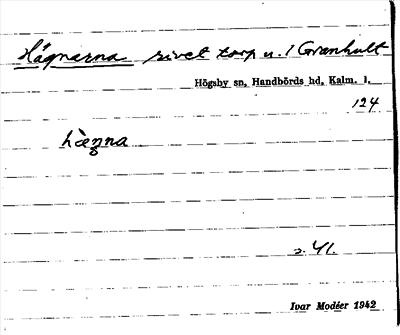 Hägnarna rivet torp u. 1 Granhult
Högsby sn, Handbörds hd, Kalm. l.
124
hæŋna
Ivar Modéer 1942